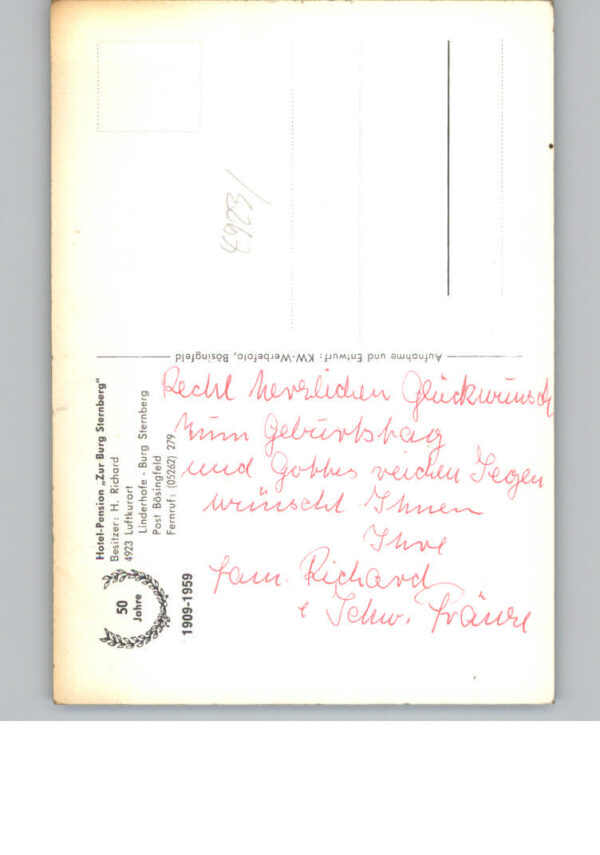 4923/
Aufnahme und Entwurf: KW-Werbefoto, Bösingfeld
Hotel-Pension „Zur Burg Sternberg"
Besitzer: H. Richard
4923 Luftkurort
Linderhofe - Burg Sternberg
Post Bösingfeld
Fernruf: (05262) 279
50
Jahre
1909-1959
Recht herzlichen Glückwunsch
zum Geburtstag
und Gottes reichen Segen
wünscht Ihnen
Ihre
Fam. Richard
Schw. Fränze